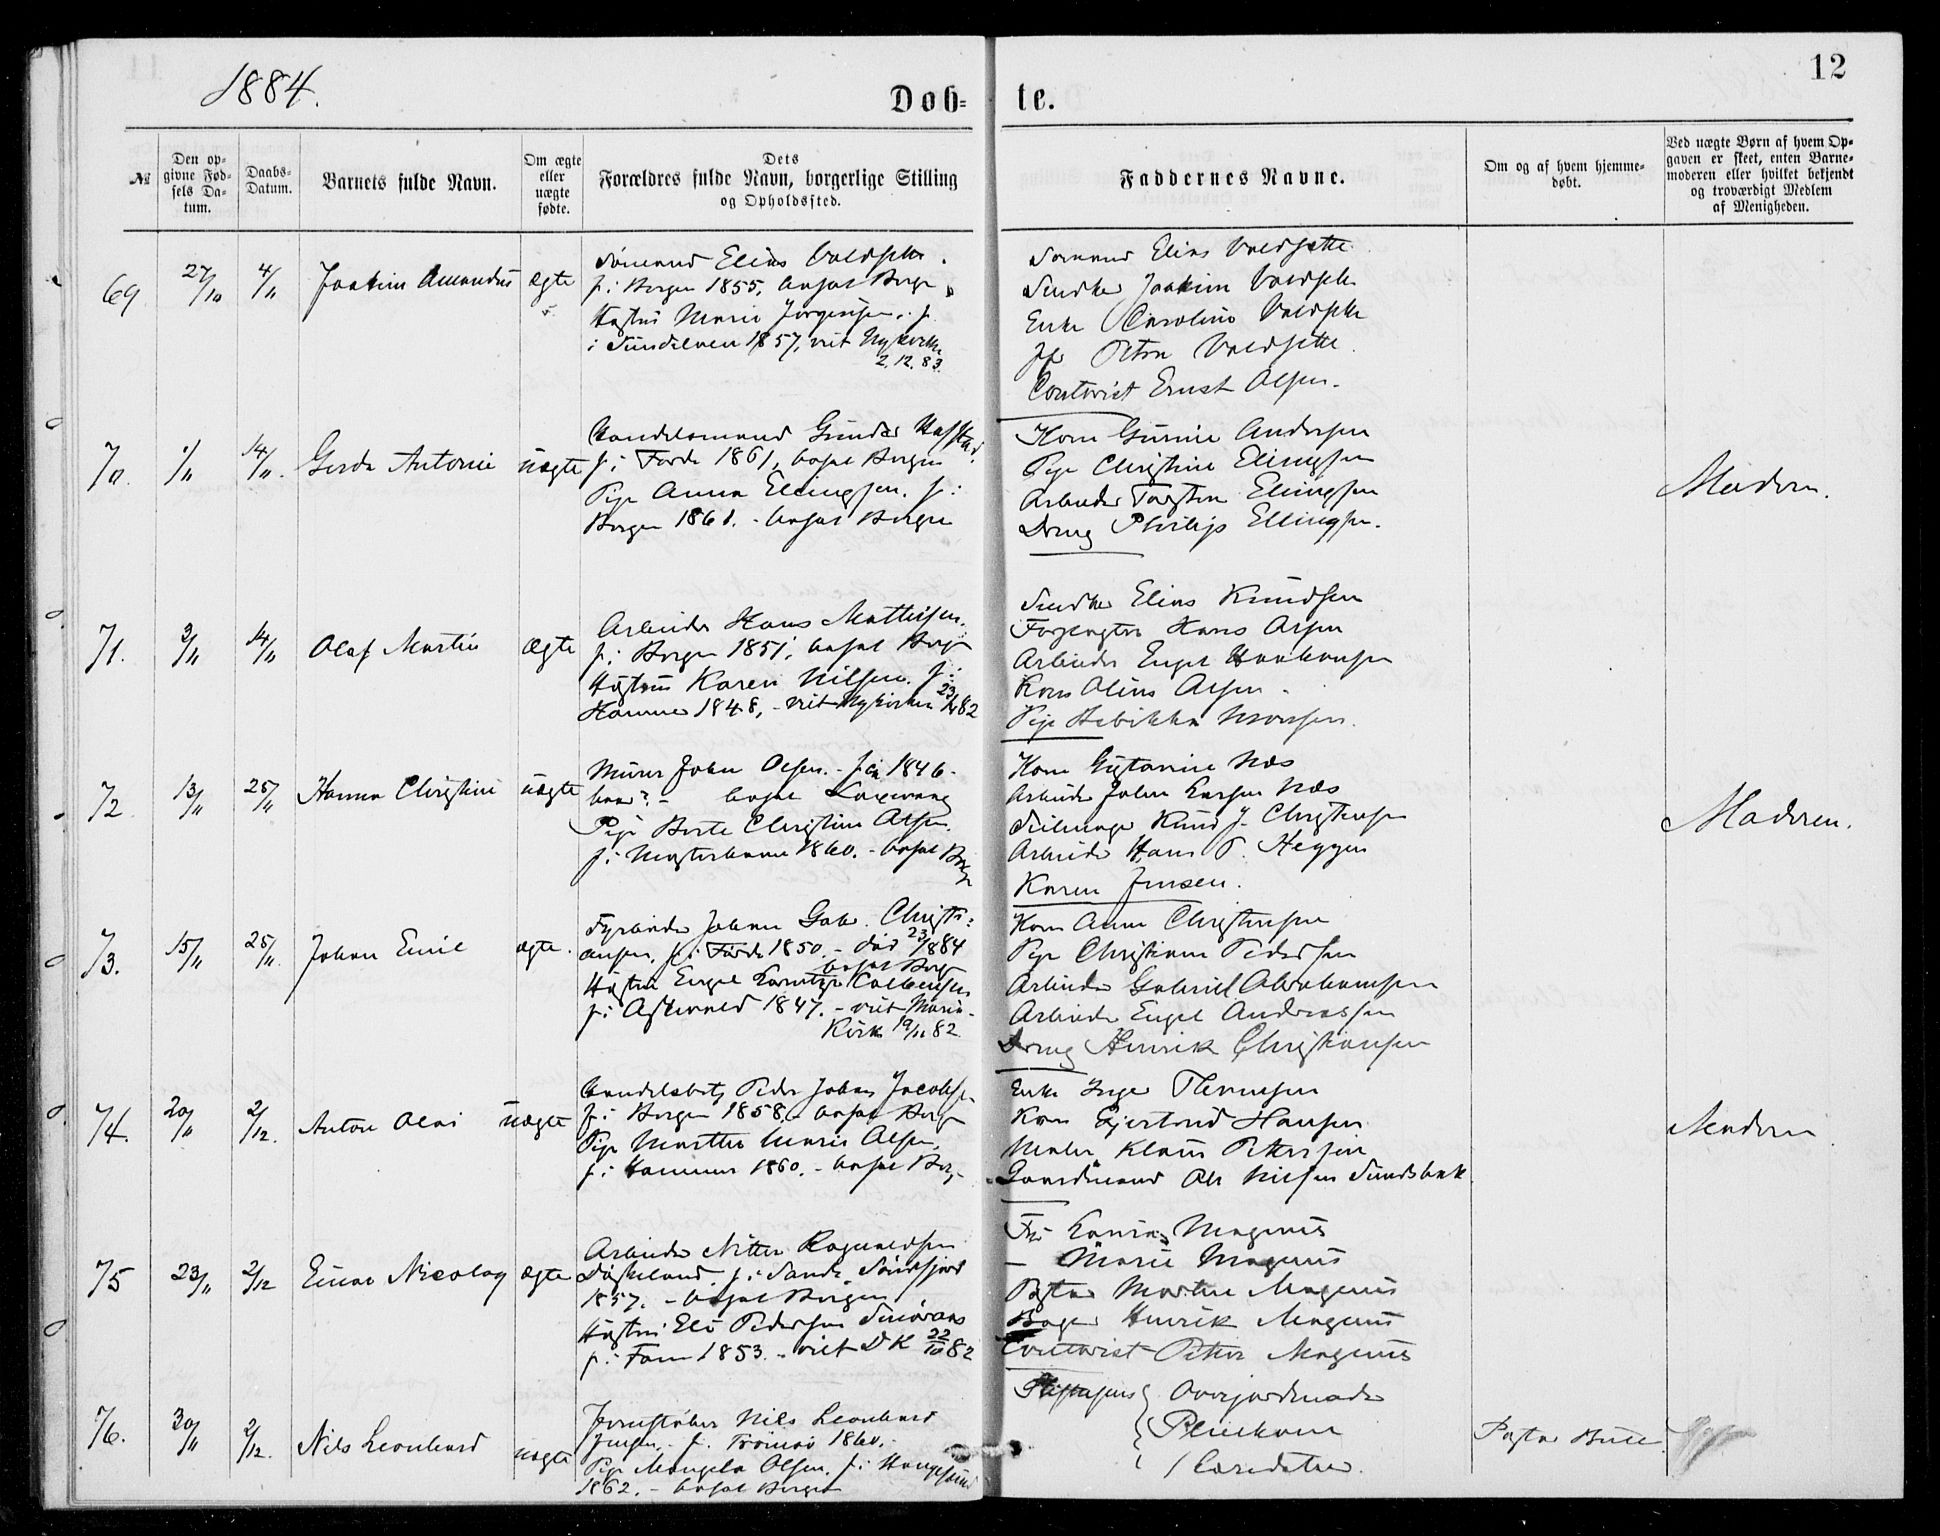 1884.
12
Døb-
te.
№
Den op-
givne Fød-
sels Da-
tum.
Daabs-
Datum.
Barnets fulde Navn.
Om ægte
eller
uægte
fødte.
Dets
Forældres fulde Navn, borgerlige Stilling
og Opholdssted.
Faddernes Navne.
Om og af hvem hjemme-
døbt.
Ved uægte Børn af hvem Op-
gaven er skeet, enten Barne-
moderen eller hvilket bekjendt
og troværdigt Medlem
af Menigheden.
69
27/10
4/11
Joakim Amandus
ægte
Sømand Elias Valdsætte
f. i Bergen 1855, bosat Berge
Hustru Marie Jørgensen f.
i Sundelven 1857, viet Nykirke
2.12.83.
Sømand Elias Valdsætte
Snedker Joakim Valdsætte
Enke Caroline Valdsætte
Jfr Petra Valdsætte
Contorist Ernst Olsen.
70.
1/11
14/11.
Gerda Antonie
uægte
Handelsmand Gunder Hafstad
f. i Førde 1861, bosat Bergen
Pige Anna Ellingsen. f. i
Bergen 1861. - bosat Bergen
Kone Gurine Andersen
Pige Christine Ellingsen
Arbeider Torsten Ellingsen
Dreng Philip Ellingsen.
Moderen.
71.
3/11
14/11
Olaf Martin
Ægte
Arbeider Hans Mathisen.
f. i Bergen 1851, bosat Berg
Hustru Karen Nilsen. f. i
Hammer 1848, - viet Nykirken 82
Snedker Elias Knudsen
Hans Olsen
Arbeider Engel Haakonsen
Kone Oline Olsen
Pige Rebikka Monsen.
72.
13/11
25/11
Hanna Christine
uægte
Murer Johan Olsen. - f. 1846-
hvor? - bosat Laxevaag
Pige Berte Christine Olsen.
f. i Mosterhavn 1860. - bosat Berg
Kone Gustavine Næs
Arbeider Johan Larsen Næs
Seilmager Knud J. Christensen
Arbeider Hans P. Heggen
Karen Jensen.
Moderen.
73.
15/11
25/11.
Johan Emil
ægte.
Fyrbøder Johan Gab. Christi-
ansen, f. i Førde 1850. - død 23/ 1884
bosat Berg
Hustru Engel
f. i Askevold 1847. - viet Marie-
Kirk 19/11 82.
Kone Anne Christensen
Pige Christiane Pedersen
Arbeider Gabriel Abrahamsen
Arbeider Engel Andreassen
Dreng Henrik Christiansen
74.
20/11
2/12.
Anton Olai
uægte
Handelsbetj Peder Johan Jacobsen
f. i Bergen 1858. - bosat Berg
Pige Marthe Marie Olsen,
f. i Hammer 1860. - bosat Berg
Enke Inger
Kone Gjertrud Hansen
Maler Klaus Pettersen
Gaardmand Ole Nilsen Sundsbak
Moderen
75
23/11
2/12
Einar Nicolay
ægte
Arbeider Nitter Ragnvaldsen
f. i Sande, Søndfjord
1857. - bosat Bergen
Hustru Eli Pedersen
f. i Fane 1853. - viet DK 22/10 82
Fru Magnus
- Marie Magnus
Pastor Morten Magnus
Bager Henrik Magnus
Contorist Peter Magnus
76.
30/11
2/12.
Nils Leonhard
uægte
Jernstøber Nils Leonhard
Jensen, f. Tromsø 1860.
Pige Olsen. f. i Haugesund
1862. - bosat Bergen
Overjordmoder
Pleiekone
Pastor Bull.